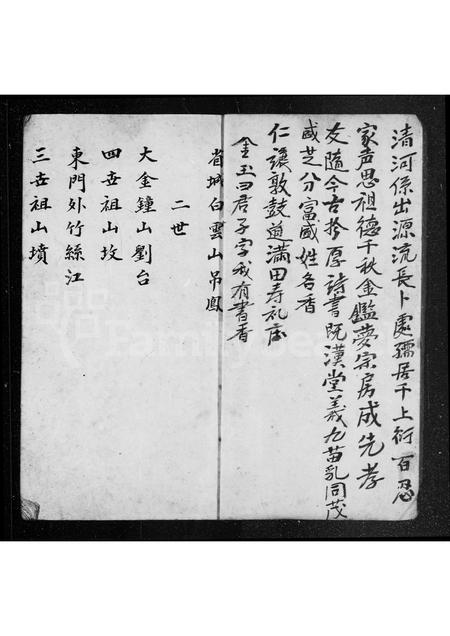 清河係出源流長卜處孺居千上衍百忍
家声思祖德千秋金鑑夢宗房成先孝
友隨今古拎厚詩書既漢堂義九苗乳同茂
盛芝分富國姓名香
仁讓敦鼓道滿田寿礼庄
金玉曰君子字我有書香
省城白雲山吊鳳
二世
大金鐘山劉台
四世祖山坟
東門外竹絲江
三世祖山墳
FamilySearch